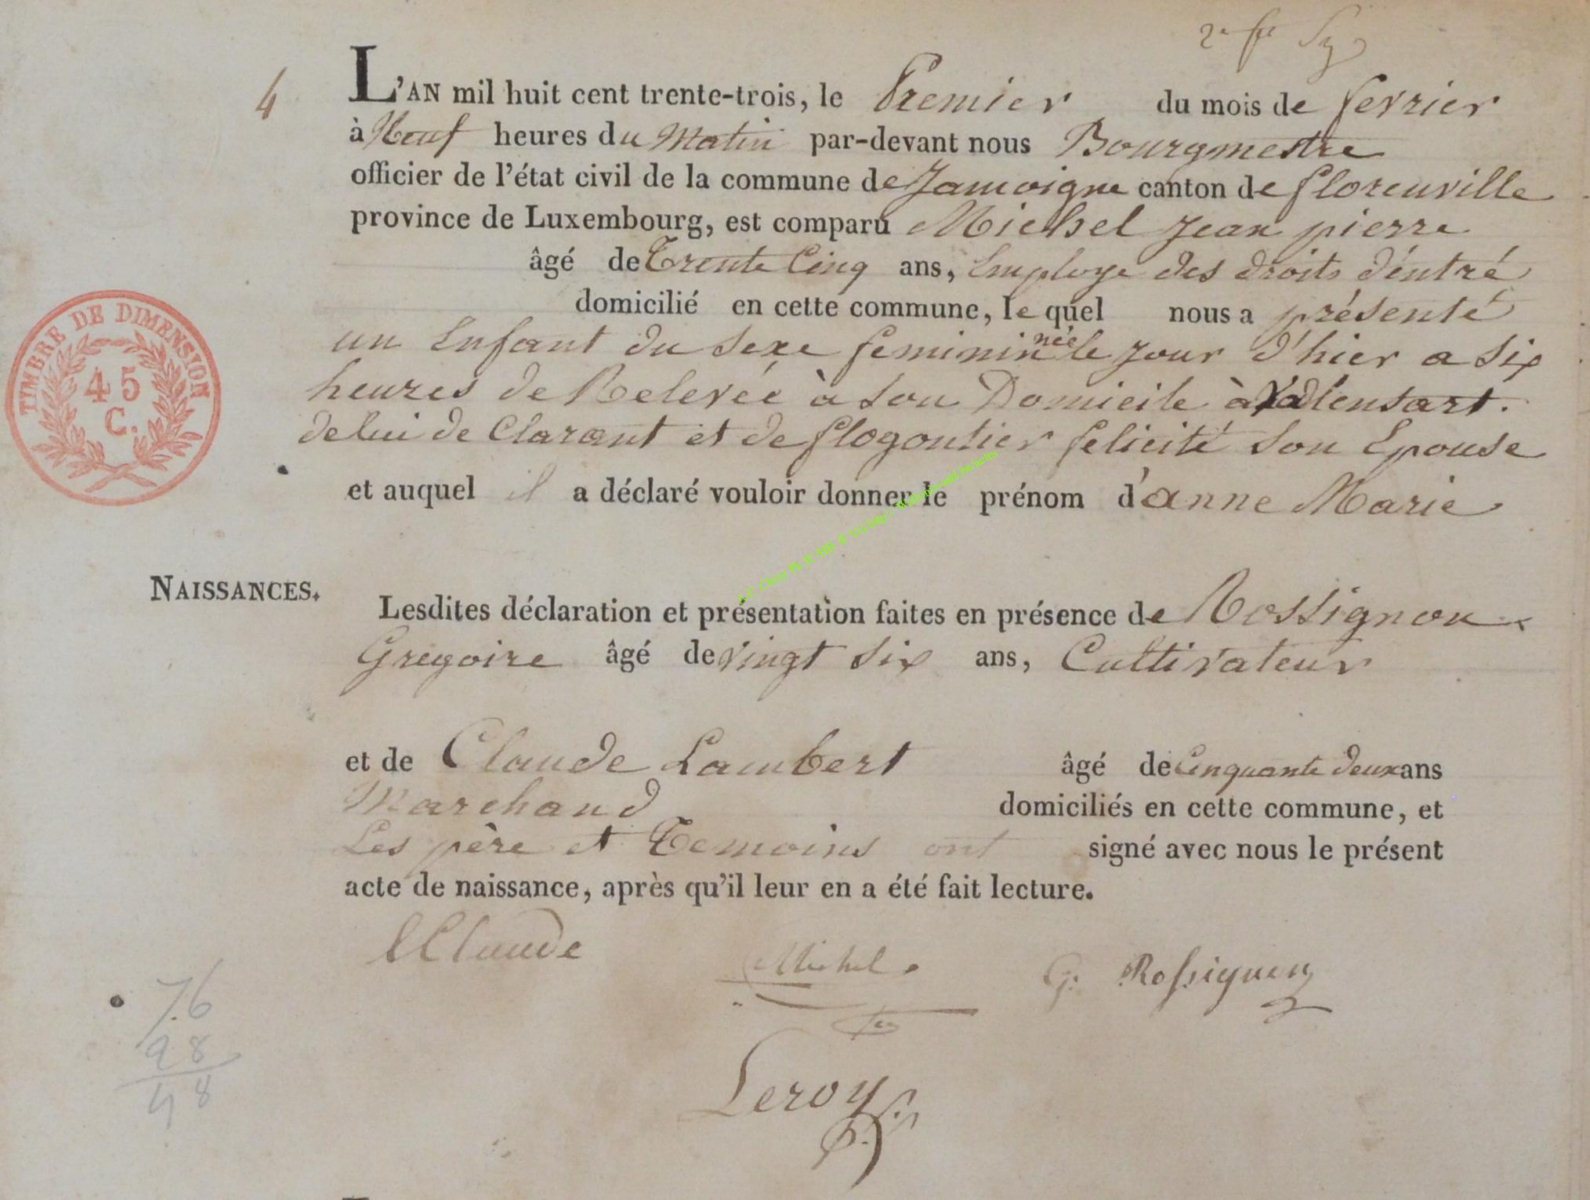 4
L'AN mil huit cent trente-trois, le Premier du mois de fevrier
à Neuf heures du Matin par-devant nous Bourgmestre
officier de l'état civil de la commune de Jamoigne canton de florenville
province de Luxembourg, est comparu Michel Jean pierre
âgé de Trente Cinq ans, Employe des droits d'éntré
domicilié en cette commune, le quel nous a présenté
un Enfant du sexe feminin née le jour d'hier a six
heures de Relevée à son Domicile à Valensart.
de lui de Clarant et de flogontier felicité son Epouse
et auquel il a déclaré vouloir donner le prénom d'anne Marie
NAISSANCES.
Lesdites déclaration et présentation faites en présence de Rossignon
Gregoire âgé de vingt six ans, Cultivateur
et de Claude Lambert âgé de Cinquante deux ans
Marchand domiciliés en cette commune, et
Les père et Temoins ont signé avec nous le présent
acte de naissance, après qu'il leur en a été fait lecture.
LClaude Michel G. Rossignon
Leroy
TIMBRE DE DIMENSION
45
C.
76
98
48